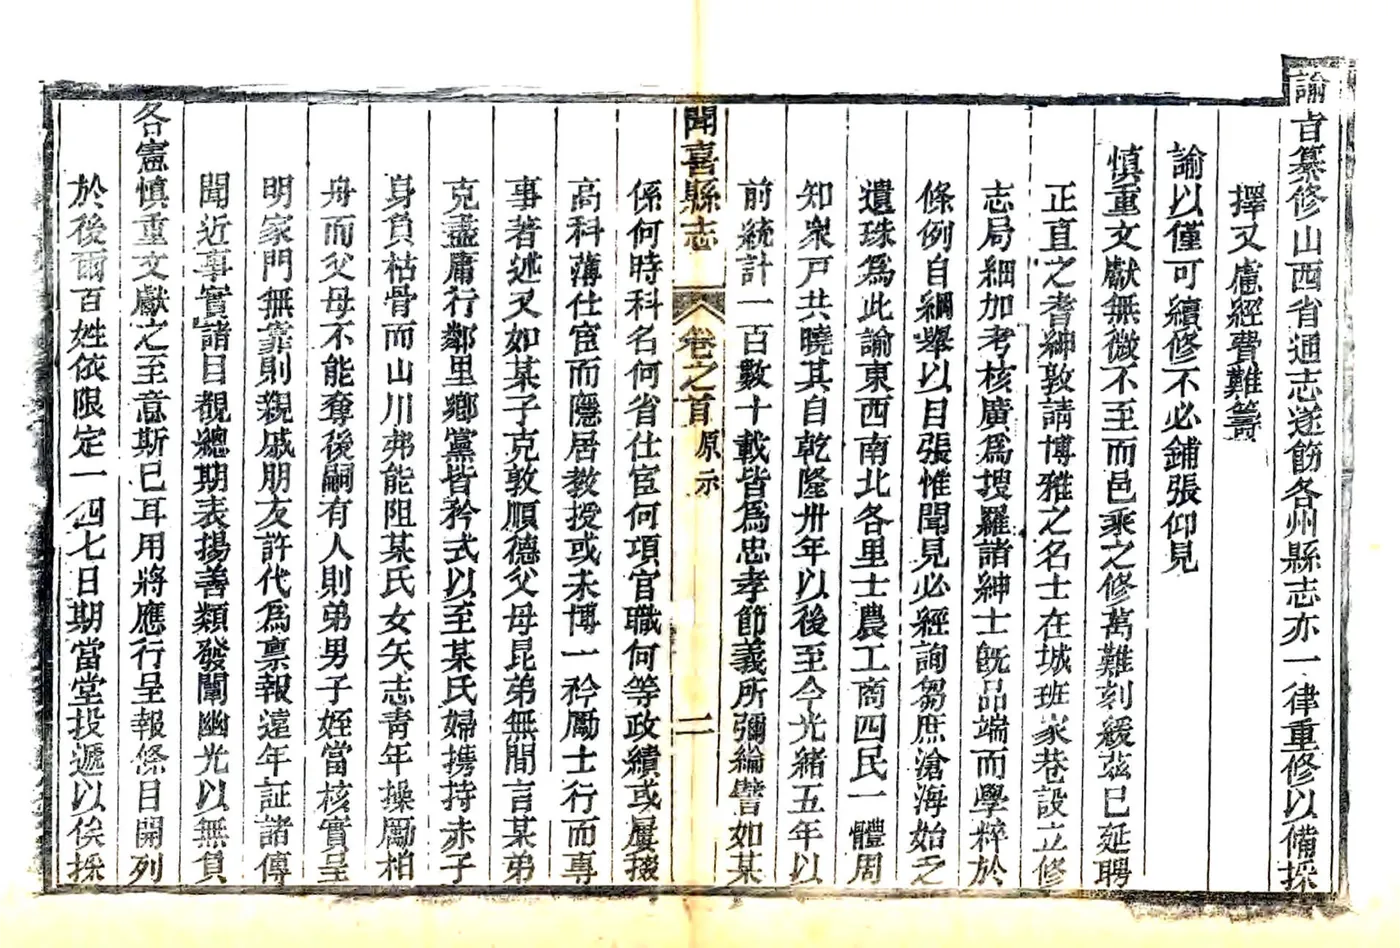 諭旨纂修山西省通志遂飭各州縣志亦一律重修以備採
擇又慮經費難籌
諭以僅可續修不必鋪張仰見
慎重文獻無微不至而邑乘之修萬難刻緩茲已延聘
正直之耆紳敦請博雅之名士在城班家巷設立修
志局細加考核廣為搜羅諸紳士既品端而學粹於
條例自綱舉以目張惟聞見必經詢芻庶滄海始乏
遺珠為此諭東西南北各里士農工商四民一體周
知衆戶共曉其自乾隆卅年以後至今光緒五年以
前統計一百數十載皆為忠孝節義所彌綸譬如某
聞喜縣志 卷之首 原示 二
係何時科名何省仕宦何項官職何等政績或屢掇
高科薄仕宦而隱居教授或未博一矜勵士行而專
事著述又如某子克敦順德父母昆弟無間言某弟
克盡庸行鄰里鄉黨皆矜式以至某氏婦携持赤子
身負枯骨而山川弗能阻某氏女矢志青年操勵柏
舟而父母不能奪後嗣有人則弟男子姪當核實呈
明家門無靠則親戚朋友許代為禀報遠年証諸傳
聞近事實諸目覩總期表揚善類發闡幽光以無負
各憲慎重文獻之至意斯已耳用將應行呈報條目開列
於後爾百姓依限定一四七日期當堂投遞以俟採